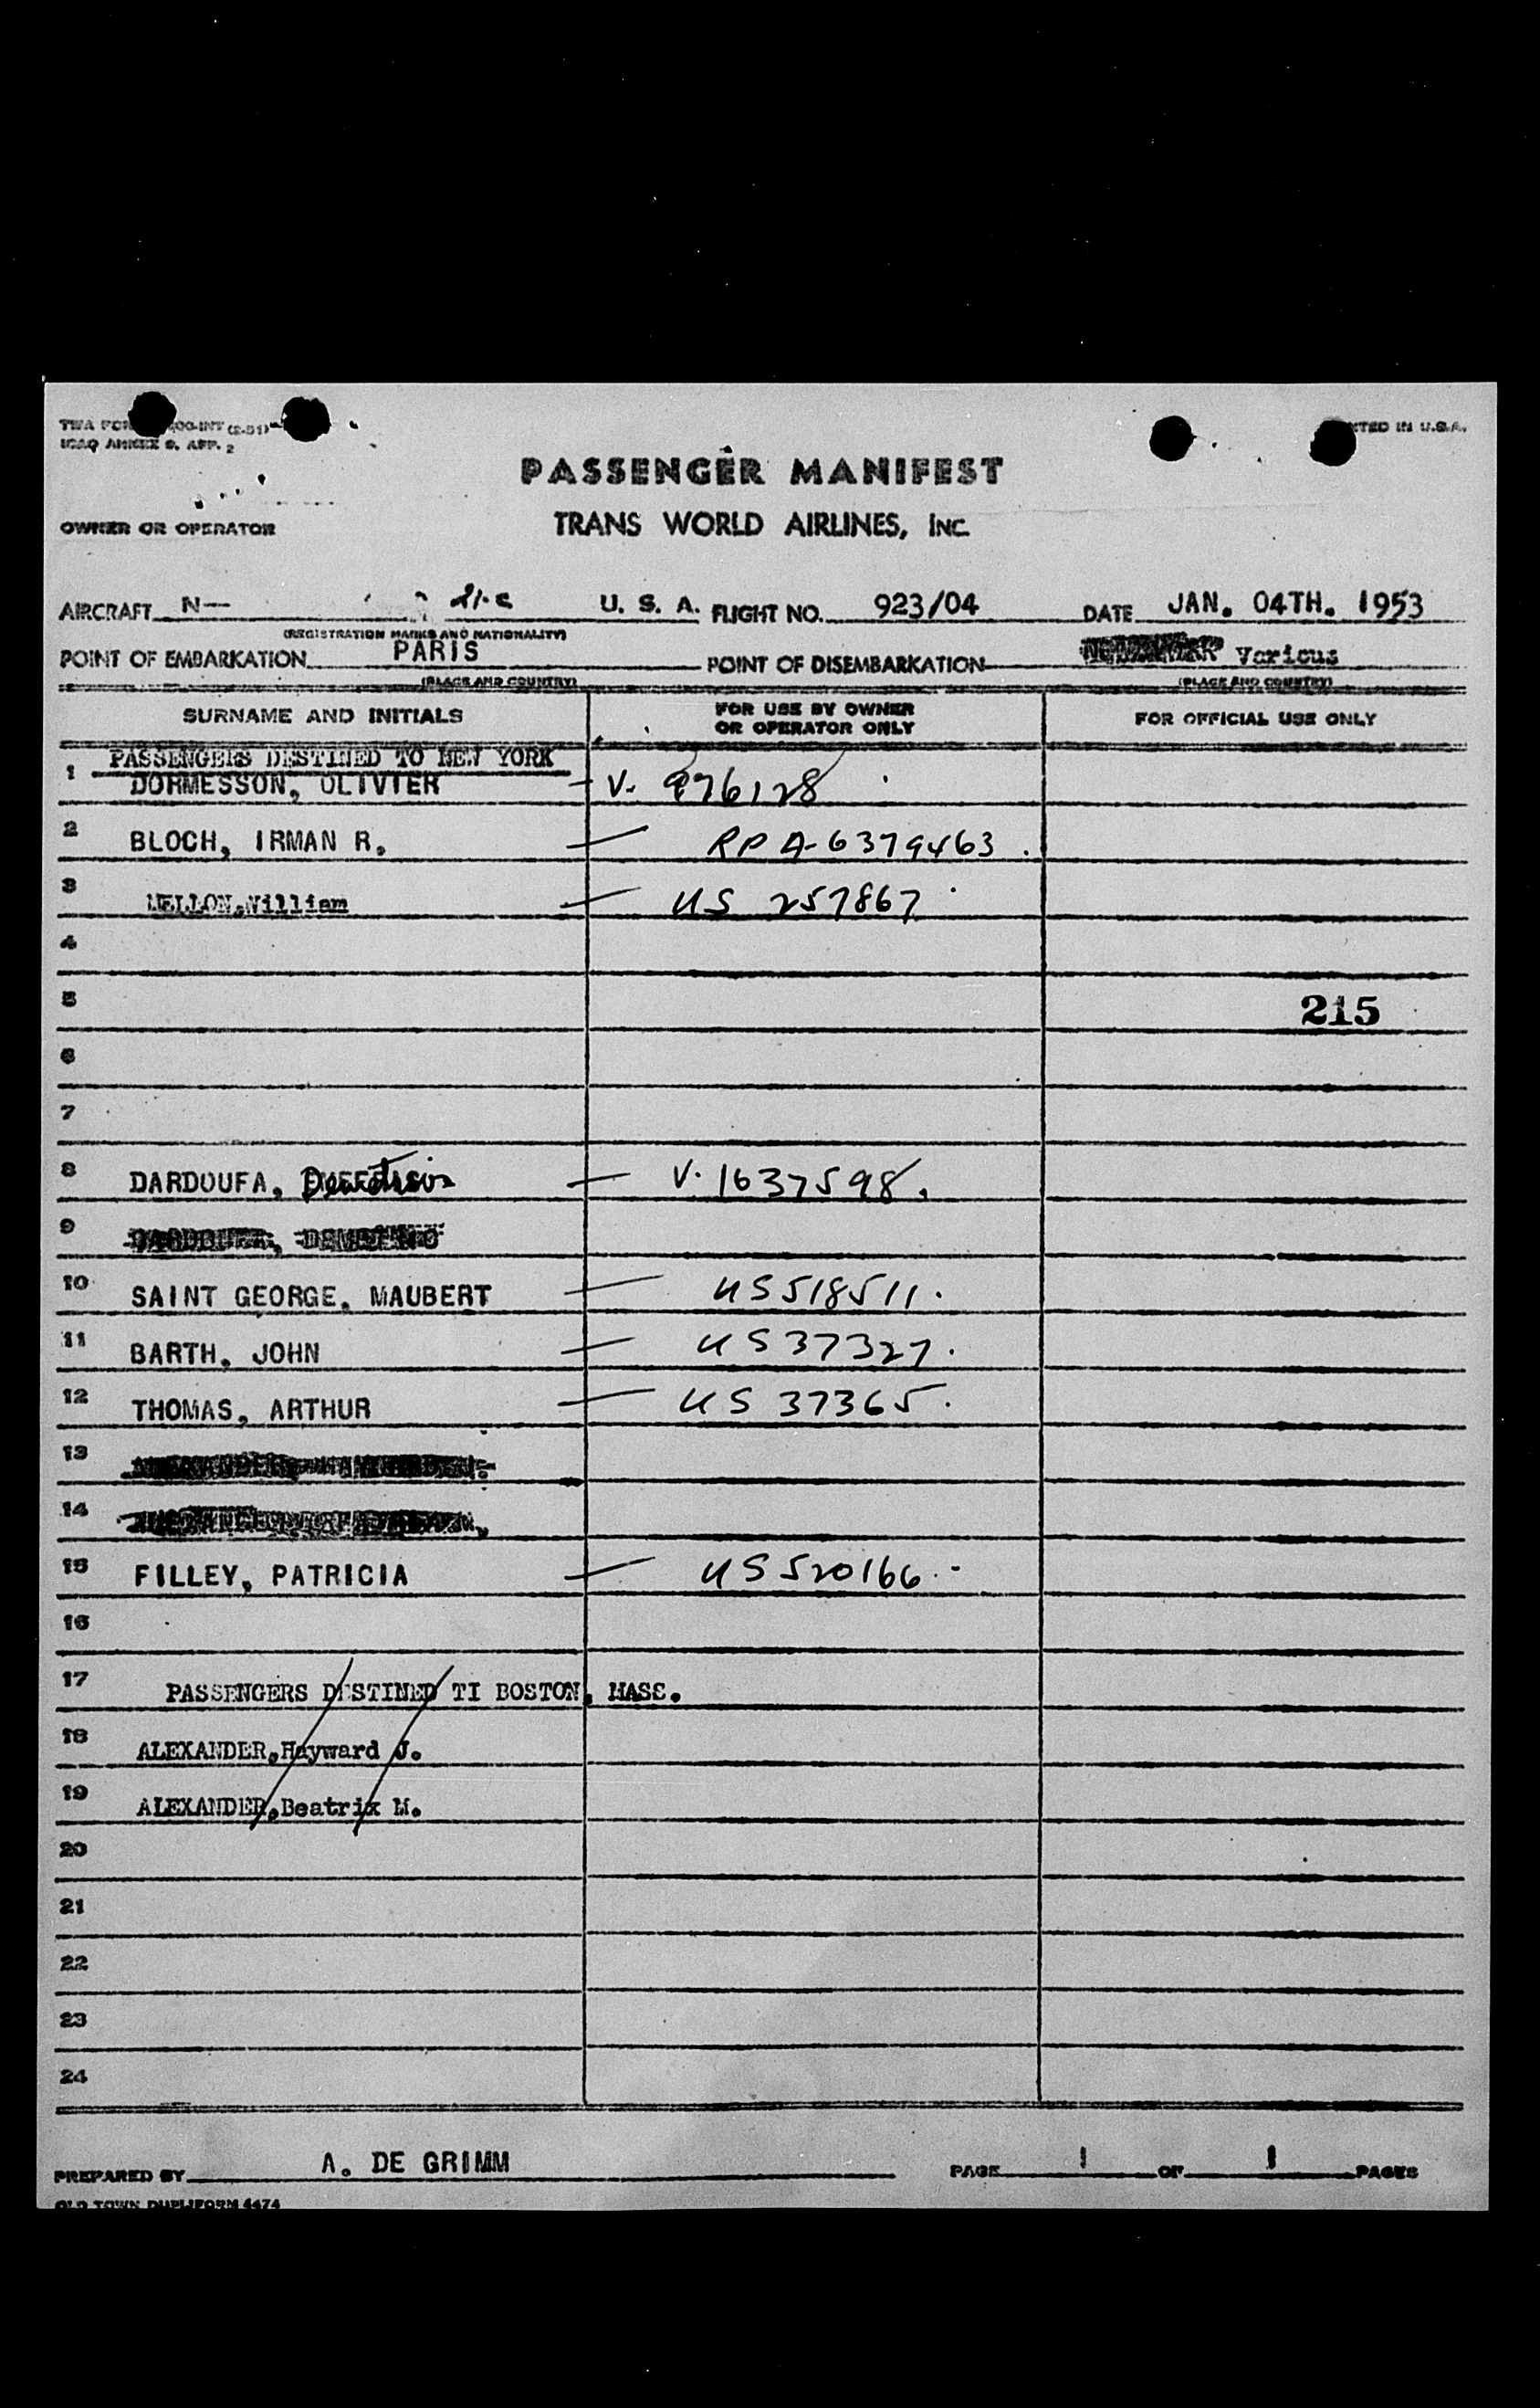 TWA FOR 400-INT (2-51)
ICAO ANNEX 9, APP. 2
PRINTED IN U.S.A.
PASSENGER MANIFEST
OWNER OR OPERATOR TRANS WORLD AIRLINES, INC.
AIRCRAFT N— 21-C U. S. A. FLIGHT NO. 923/04 DATE JAN. 04TH. 1953
(REGISTRATION MARKS AND NATIONALITY)
POINT OF EMBARKATION PARIS POINT OF DISEMBARKATION Various
(PLACE AND COUNTRY) (PLACE AND COUNTRY)
SURNAME AND INITIALS FOR USE BY OWNER OR OPERATOR ONLY FOR OFFICIAL USE ONLY
PASSENGERS DESTINED TO NEW YORK
1 DORMESSON, OLIVIER — V. 976128
2 BLOCH, IRMAN R. — RP A-6379463.
3 MELLON,William — US 257867.
4
5 215
6
7
8 DARDOUFA, — V. 1637598.
9
10 SAINT GEORGE, MAUBERT — US 518511.
11 BARTH, JOHN — US 37327.
12 THOMAS, ARTHUR — US 37365.
13
14
15 FILLEY, PATRICIA — US 520166.
16
17 PASSENGERS DESTINED TI BOSTON, MASS.
18 ALEXANDER,Hayward J.
19 ALEXANDER,Beatrix M.
20
21
22
23
24
PREPARED BY A. DE GRIMM PAGE 1 OF 1 PAGES
OLD TOWN DUPLIFORM 4474